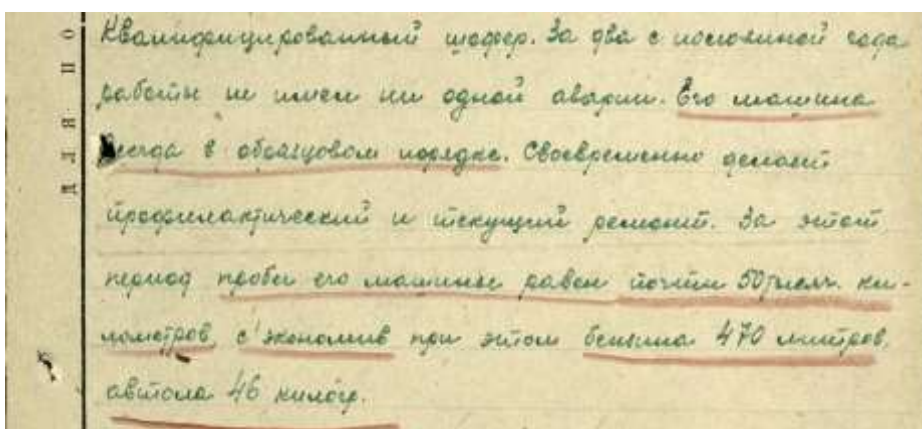 Квалифицированный шофер. За два с половиной года
работы не имел ни одной аварии. Его машина
всегда в образцовом порядке. Своевременно делает
профилактический и текущий ремонт. За этот
период пробег его машины равен почти 50 тысяч ки-
лометров, с'экономив при этом бензина 470 литров,
автола 46 килогр.
Д Л Я П О